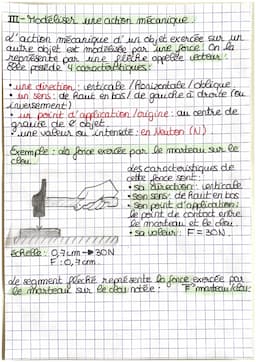 III - Modéliser une action mécanique :
L'action mécanique d'un objet exercée sur un
autre objet est modélisée par une force. On la
représente par une flèche appelée vecteur.
Elle possède 4 caractéristiques :
• une direction : verticale / horizontale / oblique
• un sens : de haut en bas / de gauche à droite (ou
inversement)
• un point d'application / origine : au centre de
gravité de l'objet.
• une valeur ou intensité : en Newton (N)
Exemple : La force exercée par le marteau sur le
clou.
Les caractéristiques de
cette force sont :
• sa direction : verticale
• son sens : de haut en bas
• son point d'application :
le point de contact entre
le marteau et le clou.
• sa valeur : F = 30N.
échelle : 0,7cm → 30N
F : 0,7cm
Le segment fléché représente la force exercée par
le marteau sur le clou notée : F marteau/clou